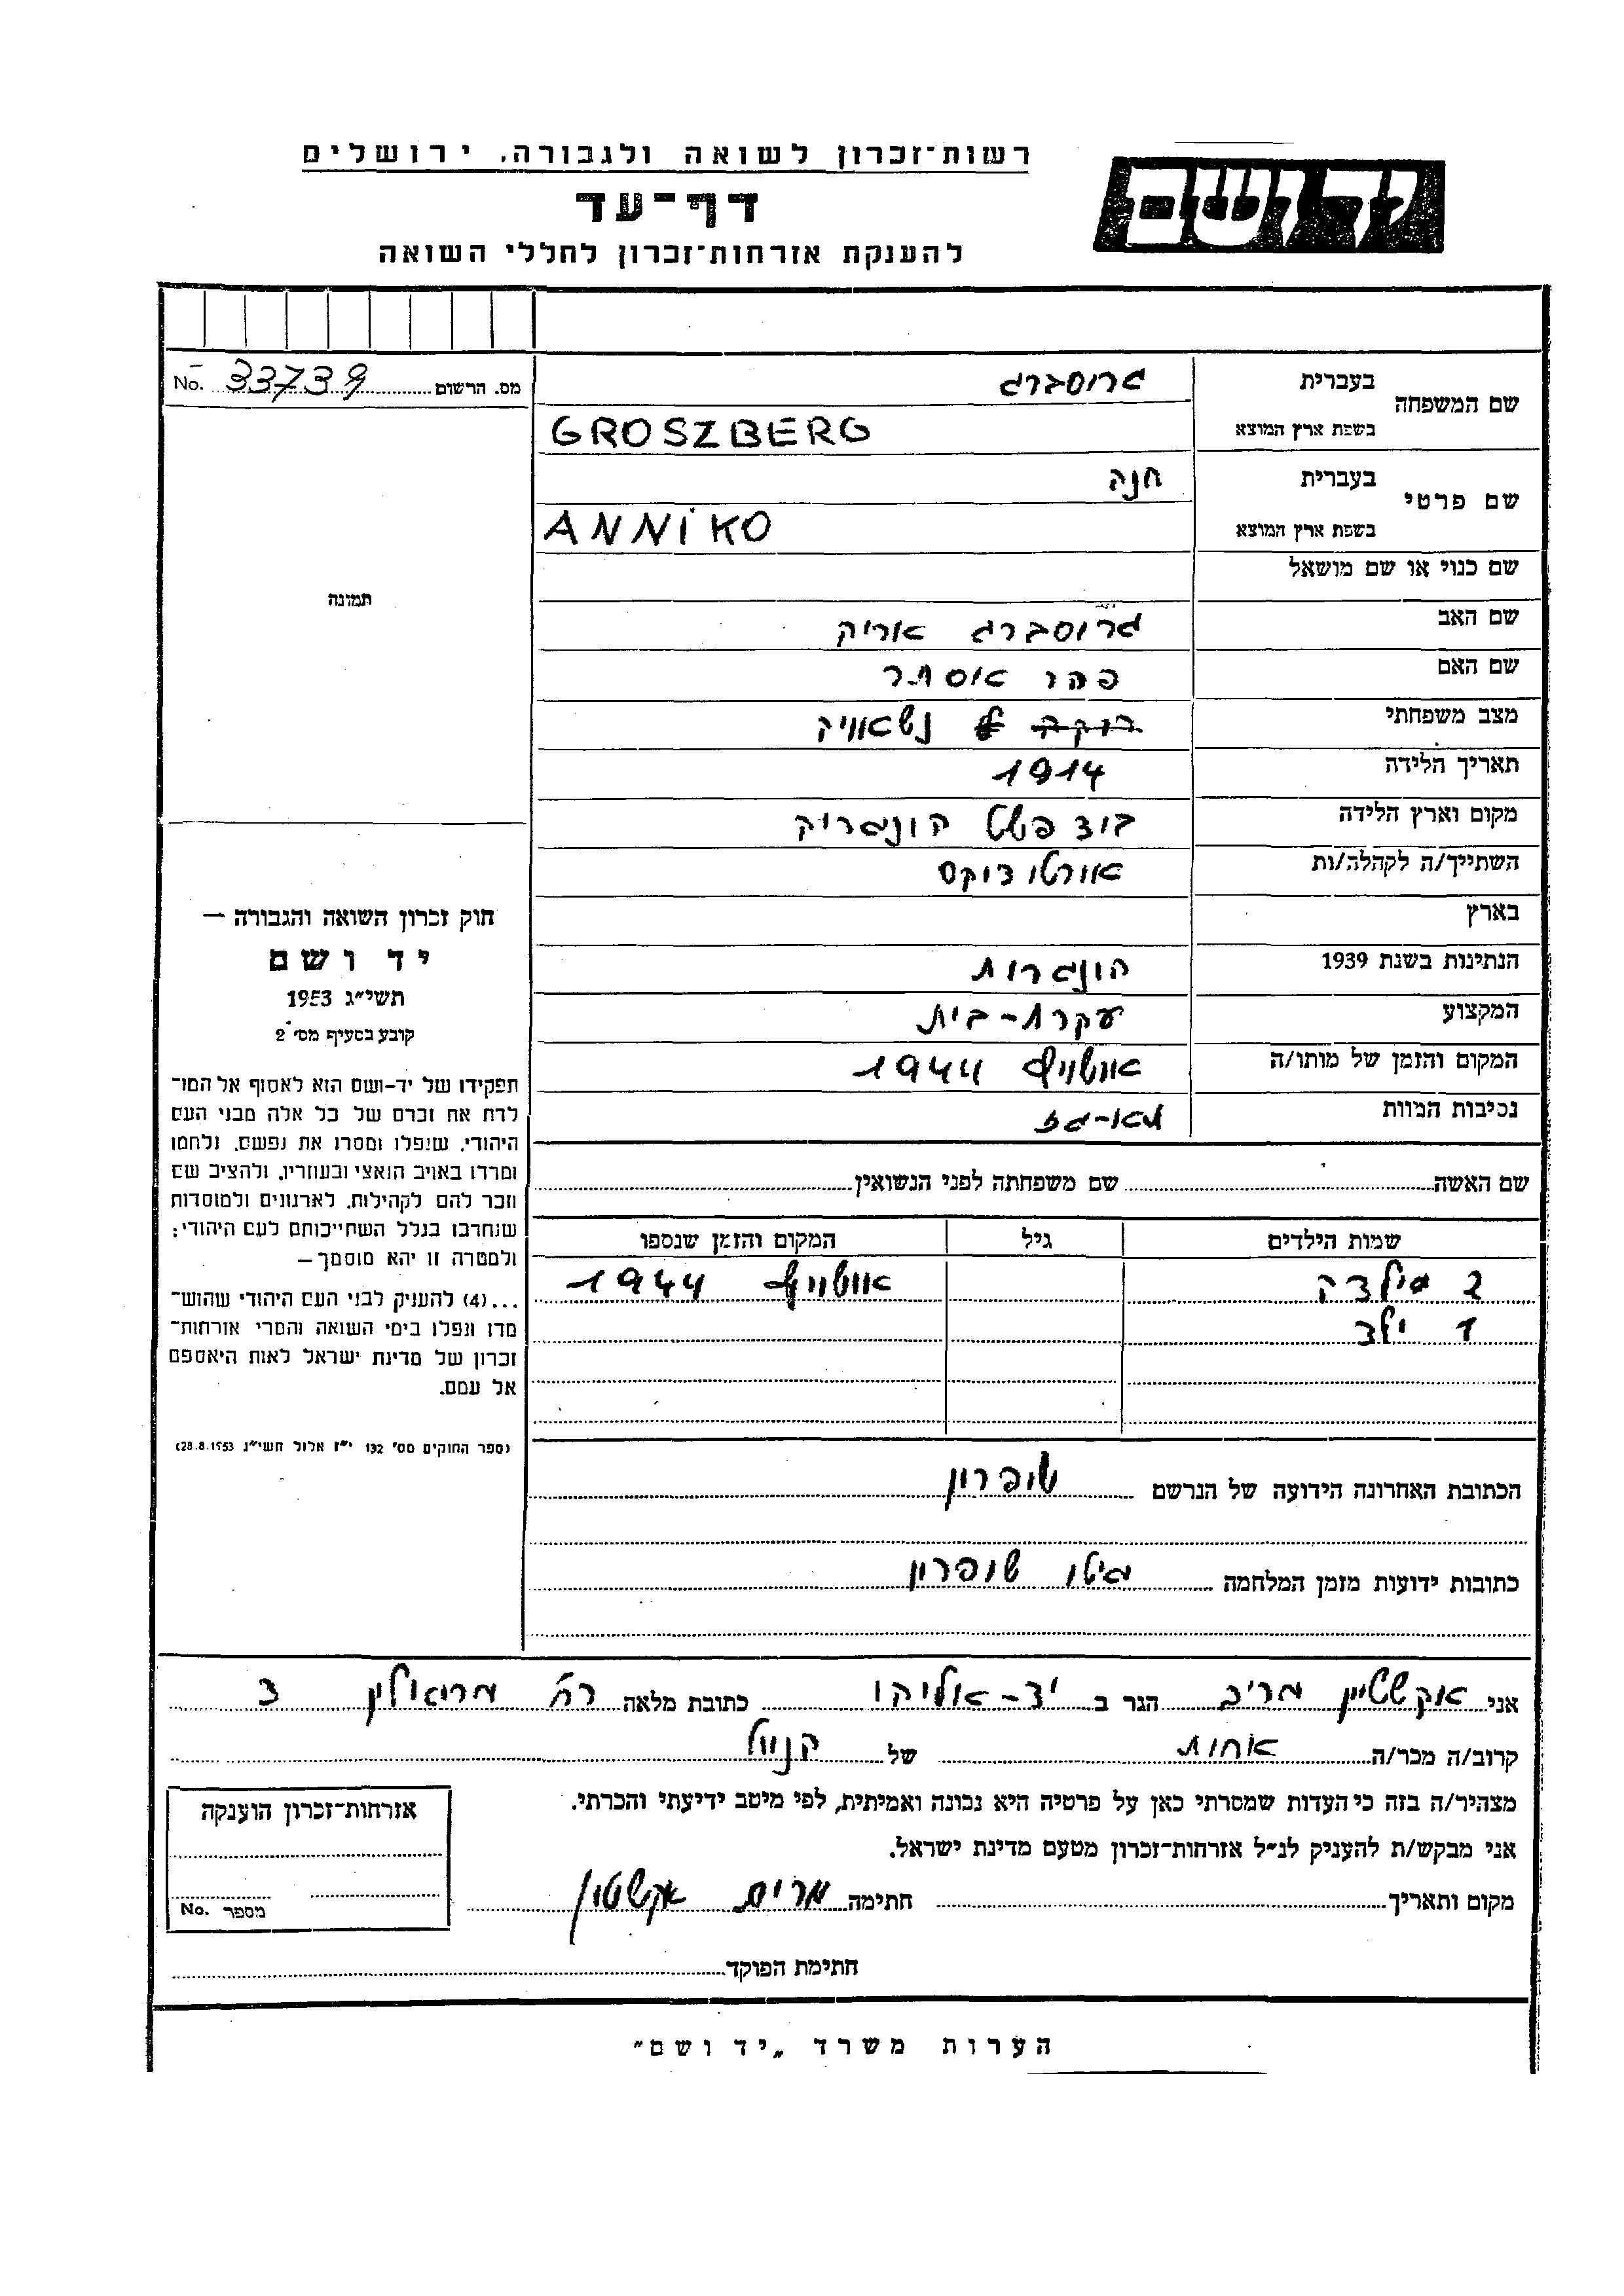 רשות-זכרון לשואה ולגבורה, ירושלים
יד ושם
דף-עד
להענקת אזרחות-זכרון לחללי השואה
שם המשפחה בעברית גרוסברג
בשפת ארץ המוצא GROSZBERG
שם פרטי בעברית חנה
בשפת ארץ המוצא ANNIKO
שם כנוי או שם מושאל
שם האב גרוסברג אריק
שם האם אסתר
מצב משפחתי נשאויה
תאריך הלידה 1914
מקום וארץ הלידה בודפשט הונגריה
השתייך/ה לקהלה/ות אורטודוקס
בארץ
הנתינות בשנת 1939 הונגרות
המקצוע עקרת-בית
המקום והזמן של מותו/ה אושויץ 1944
נסיבות המוות תא-גז
שם האשה שם משפחתה לפני הנשואין
שמות הילדים גיל המקום והזמן שנספו
2 ילדה אושויץ 1944
1 ילד
הכתובת האחרונה הידועה של הנרשם שופרון
כתובות ידועות מזמן המלחמה גיטו שופרון
No. 33739 מס. הרשום
תמונה
חוק זכרון השואה והגבורה —
יד ושם
תשי"ג 1953
קובע בסעיף מס' 2
תפקידו של יד-ושם הוא לאסוף אל המו-
לדת את זכרם של כל אלה מבני העם
היהודי, שנפלו ומסרו את נפשם, נלחמו
ומרדו באויב הנאצי ובעוזריו, ולהציב שם
וזכר להם לקהילות, לארגונים ולמוסדות
שנחרבו בגלל השתייכותם לעם היהודי;
ולמטרה זו יהא מוסמך —
...(4) להענק לבני העם היהודי שהוש-
מדו ונפלו בימי השואה והמרי אזרחות-
זכרון של מדינת ישראל לאות היאספם
אל עמם.
(ספר החוקים מס' 132 י"ז אלול תשי"ג 28.8.1953)
אני אקשטיין מרים הגר ב יד-אליהו כתובת מלאה רח' מרגולין 3
קרוב/ה מכר/ה אחות של
מצהיר/ה בזה כי העדות שמסרתי כאן על פרטיה היא נכונה ואמיתית, לפי מיטב ידיעתי והכרתי.
אני מבקש/ת להעניק לנ"ל אזרחות-זכרון מטעם מדינת ישראל.
מקום ותאריך חתימה מרים אקשטיין
אזרחות-זכרון הוענקה
No. מספר
חתימת הפוקד
הערות משרד „יד ושם"